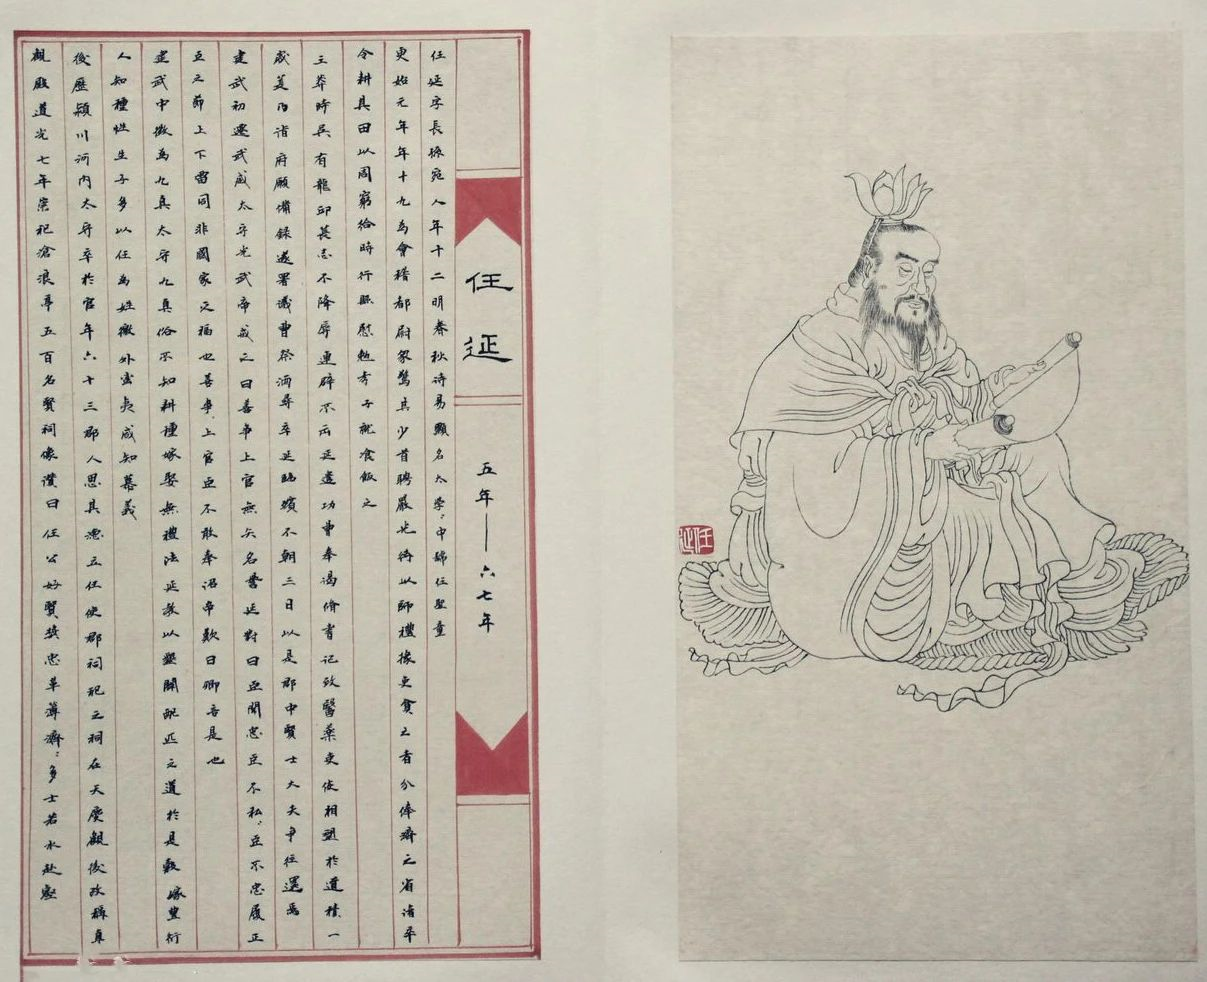 任延
五年——六七年
任延字長孫宛人年十二明春秋詩易顯名太學˙中歸任聖童
更始元年年十九為會稽都尉眾驚其少首聘嚴光待以師禮掾吏貧乏者分俸濟之省諸卒
令耕其田以周窮給時行縣慰勉孝子就飡飯之
王莽時吳有龍邱萇志不降辱連辟不而延遣功曹奉謁脩書記致醫藥吏使相望於道積一
歲萇乃詣府願備錄遂署議曹祭酒尋卒延臨殯不朝三日以是郡中賢士大夫爭往還焉
建武初遷武威太守光武帝戒之曰善事上官無失名譽延對曰臣聞忠臣不私˙臣不忠履正
臣之節上下雷同非國家之福也善事上官臣不敢奉詔帝歎曰卿言是也
建武中徵為九真太守九真俗不知耕種嫁娶無禮法延教以墾闢配匹之道於是穀稼豐衍
人知種性生子多以任為姓徼外蠻夷咸知慕義
後歷潁川河內太守卒於官年六十三郡人思其德立任使郡祠祀之祠在天慶觀後改稱真
觀殿道光七年崇祀滄浪亭五百名賢祠像讚曰任公好賢獎忠革薄濟˙多士若水赴壑
任延